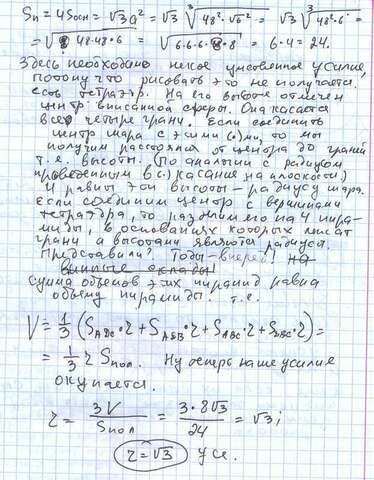 Sп = 4Sосн = √3 a² = √3 ∛(48² · √6²) = √3 ∛(48² · 6) =
= √(8 · 48 · 48 · 6) = √(6 · 6 · 6 · 8 · 8) = 6 · 4 = 24.
Здесь необходимо некое умственное усилие,
потому что рисовать это не получается.
есть тетраэдр. На его высоте отмечен
центр вписанной сферы. Она касается
всех четыре грани. Если соединить
центр шара с этими (·)ми, то мы
получим расстояния от центра до граней
т.е. высоты. (По аналогии с радиусом
проведенным в (·) касание на плоскости)
И равны эти высоты – радиусу шара.
Если соединим центр с вершинами
тетраэдра, то разделим его на 4 пира-
миды, в основаниях которых лежат
грани а высотами являются радиусы.
Представили? Тогда – вперед! на
винные склады!
Сумма объемов этих пирамид равна
объему пирамиды. т.е.
V = 1/3 (SADC · r + SASB · r + SABC · r + SSBC · r) =
= 1/3 r Sпол. Ну теперь наше усилие
окупается.
r = 3V/Sпол = 3 · 8√3/24 = √3;
r = √3 Усе.